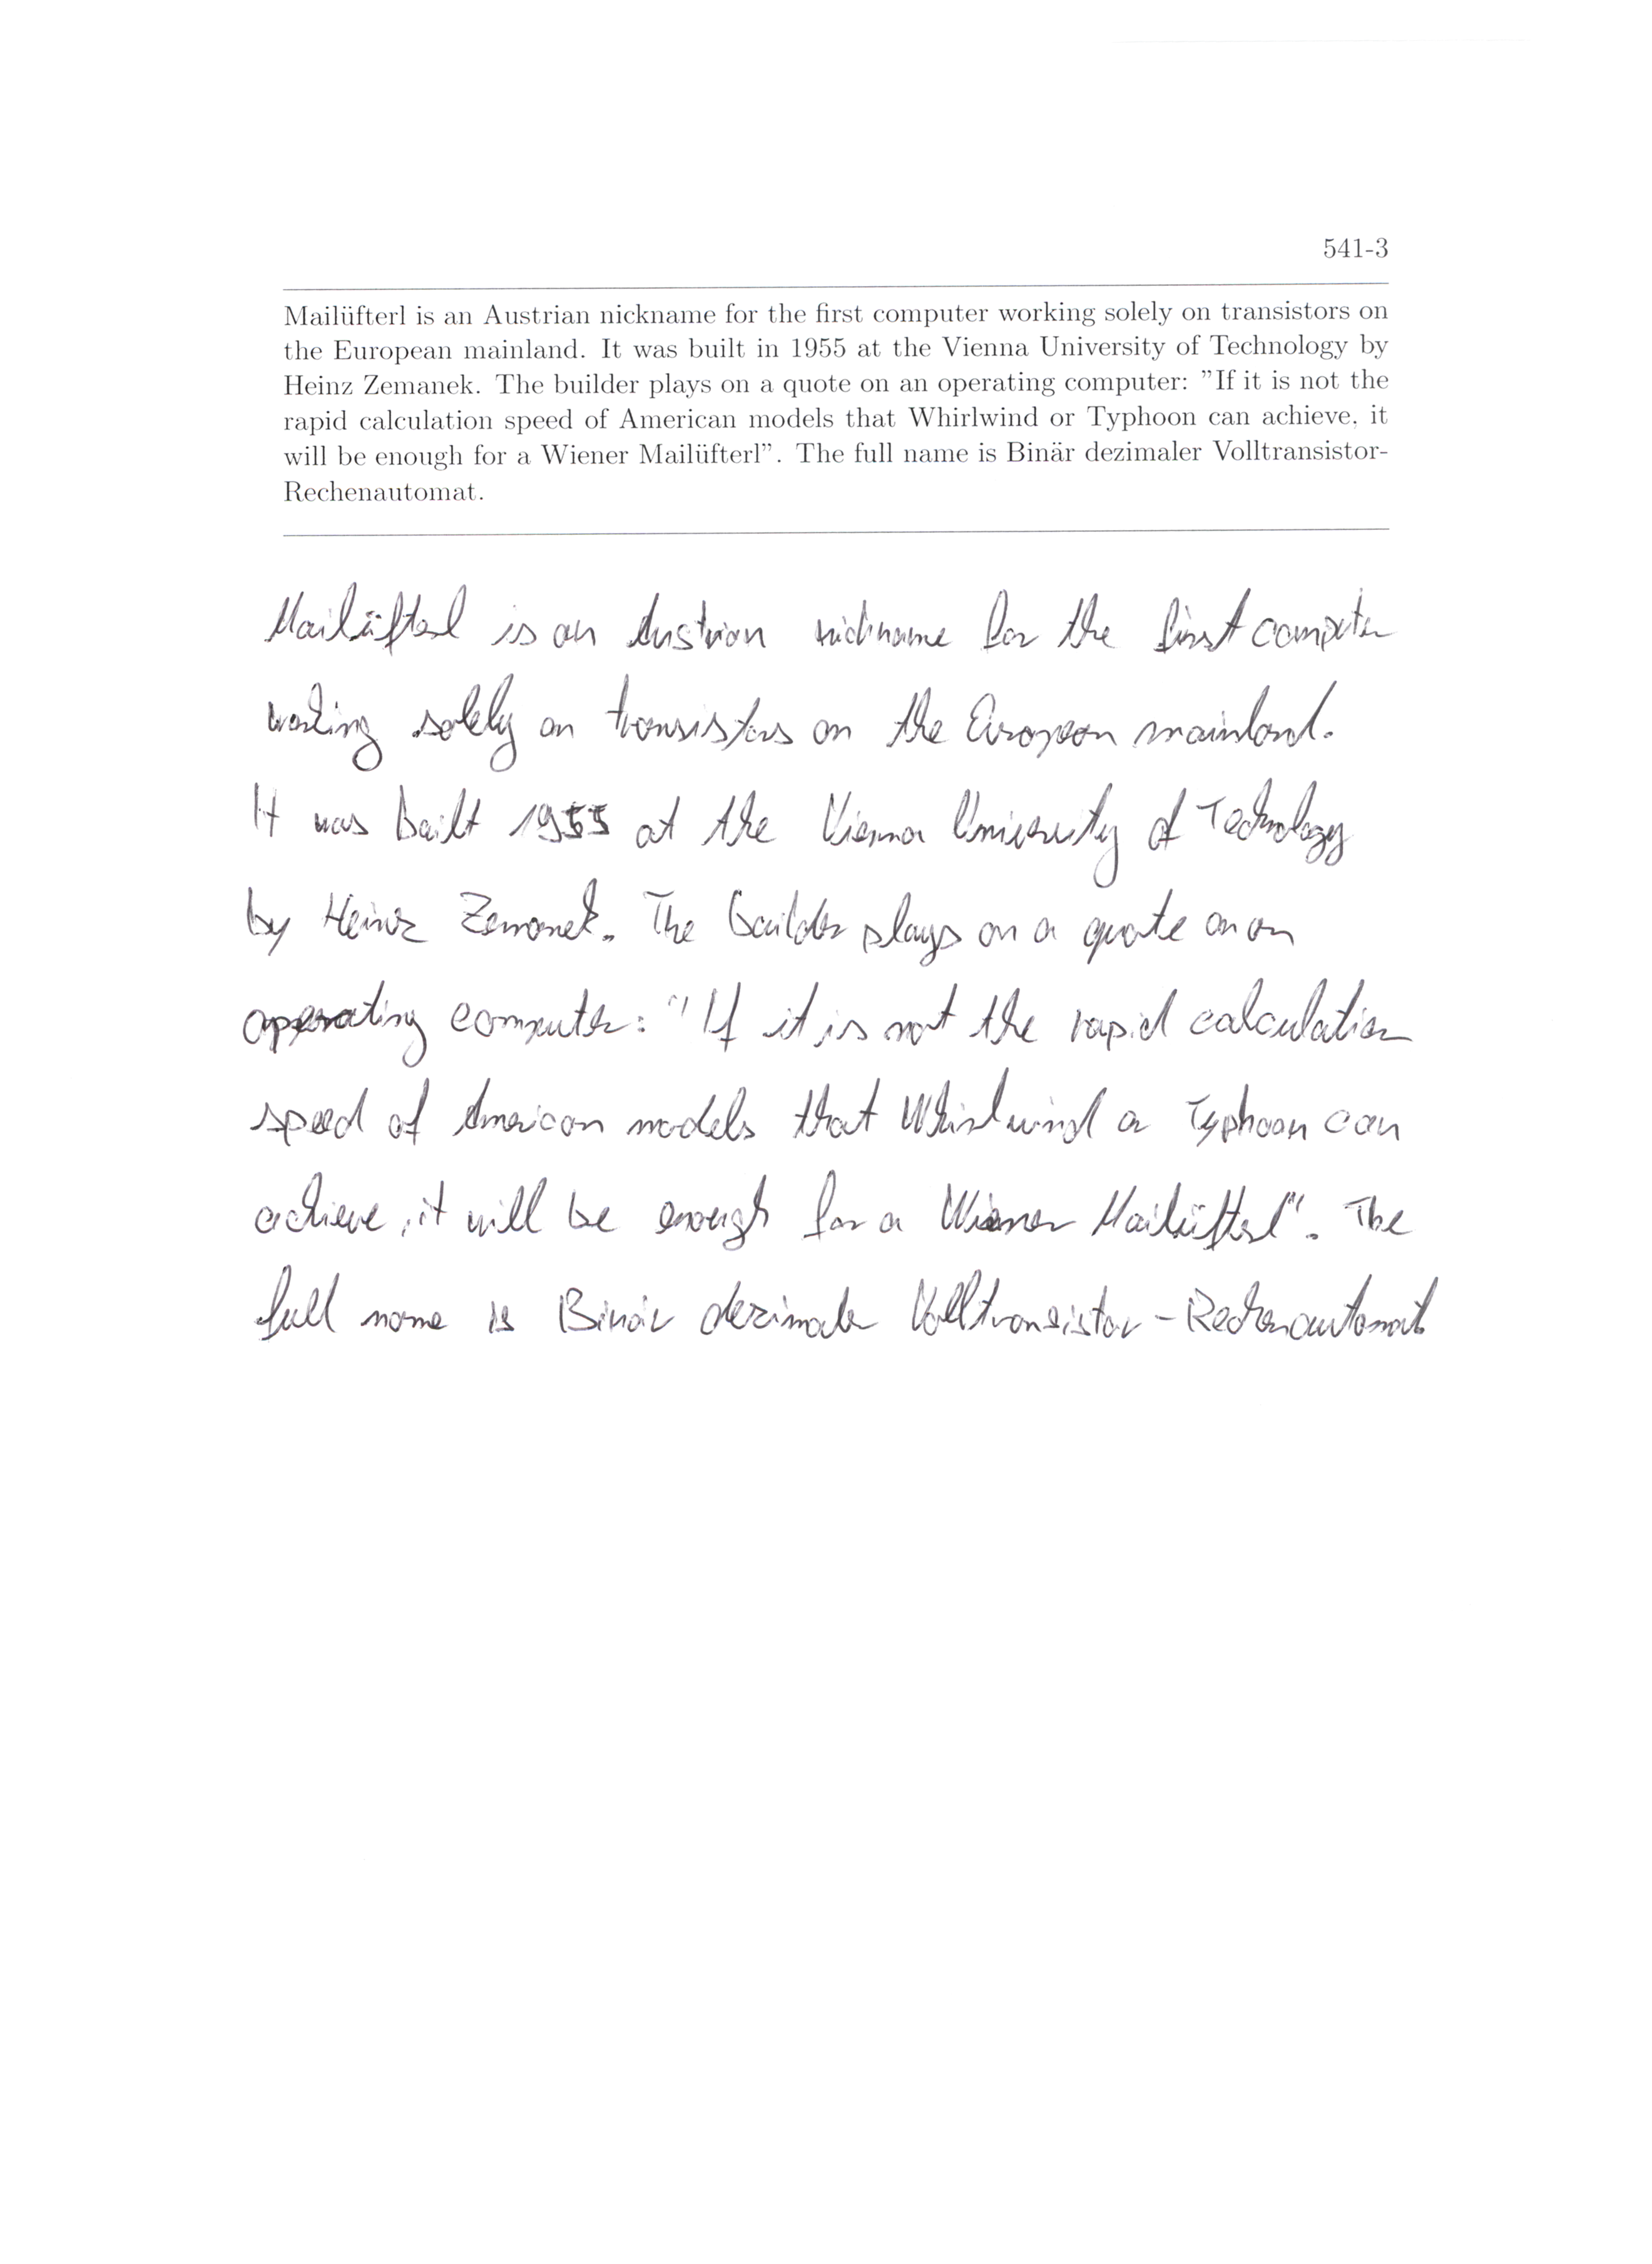 541-3
Mailüfterl is an Austrian nickname for the first computer working solely on transistors on
the European mainland. It was built in 1955 at the Vienna University of Technology by
Heinz Zemanek. The builder plays on a quote on an operating computer: "If it is not the
rapid calculation speed of American models that Whirlwind or Typhoon can achieve, it
will be enough for a Wiener Mailüfterl". The full name is Binär dezimaler Volltransistor-
Rechenautomat.
Mailüfterl is an Austrian nickname for the first computer
working solely on transistors on the European mainland.
It was built 1955 at the Vienna University of Technology
by Heinz Zemanek. The builder plays on a quote on an
operating computer: "If it is not the rapid calculation
speed of American models that Whirlwind or Typhoon can
achieve, it will be enough for a Wiener Mailüfterl". The
full name is Binär dezimaler Volltransistor-Rechenautomat.